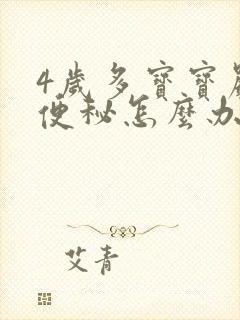 4歲多寶寶
便秘怎麼办
艾青